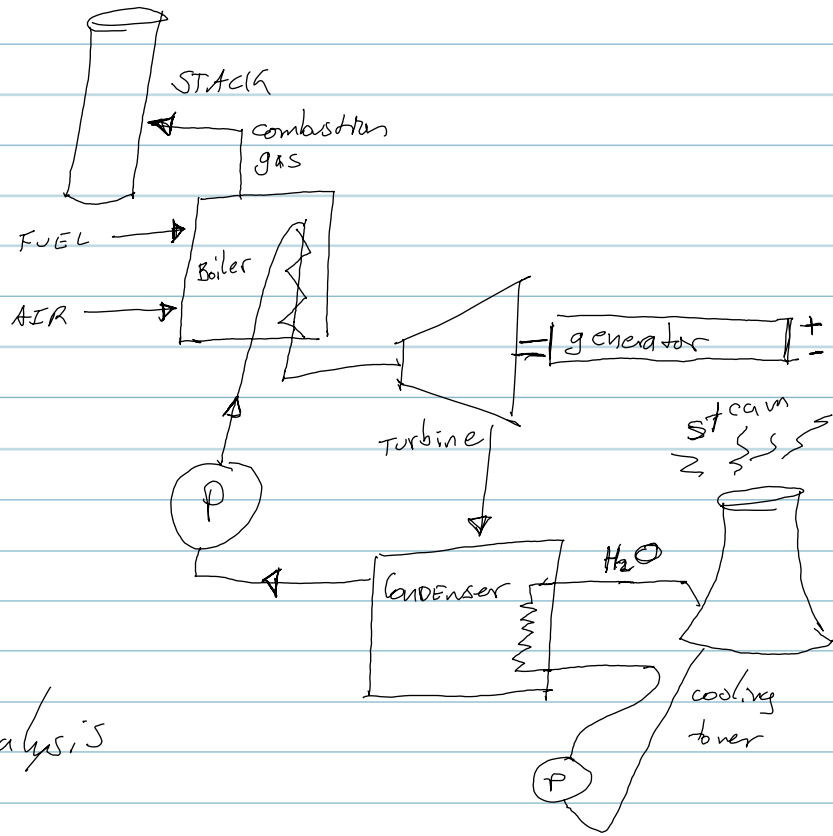 STACK
combustion
gas
FUEL
Boiler
AIR
generator
+
-
Turbine
steam
P
H₂O
CONDENSER
cooling
tower
alysis
P